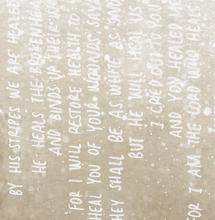 BY HIS STRIPES WE ARE HEALED
HE HEALS THE BROKENHEA
AND BINDS UP THEIR WO
FOR I WILL RESTORE HEALTH TO
HEAL YOU OF YOUR WOUNDS SAY
THEY SHALL BE AS WHITE AS SNO
BUT HE WILL HEAL US
I CRIED OUT TO YOU
AND YOU HEALED
FOR I AM THE LORD WHO HEALS